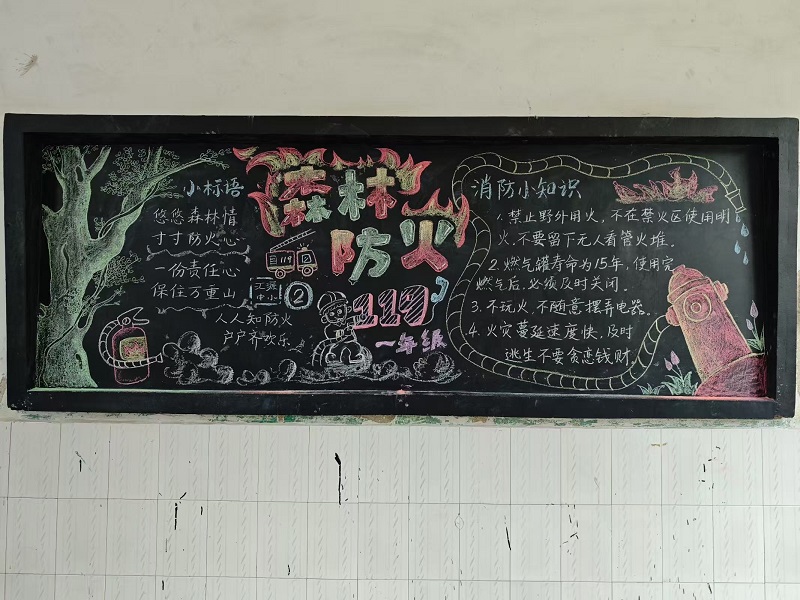 小标语
悠悠森林情
寸寸防火心
一份责任心
保住万重山
人人知防火
户户齐欢乐
森林
防火
119
中小
②
119
一年级
消防小知识
1.禁止野外用火,不在禁火区使用明
火,不要留下无人看管火堆。
2.燃气罐寿命为15年,使用完
燃气后,必须及时关闭。
3.不玩火,不随意摆弄电器。
4.火灾蔓延速度快,及时
逃生不要贪恋钱财。